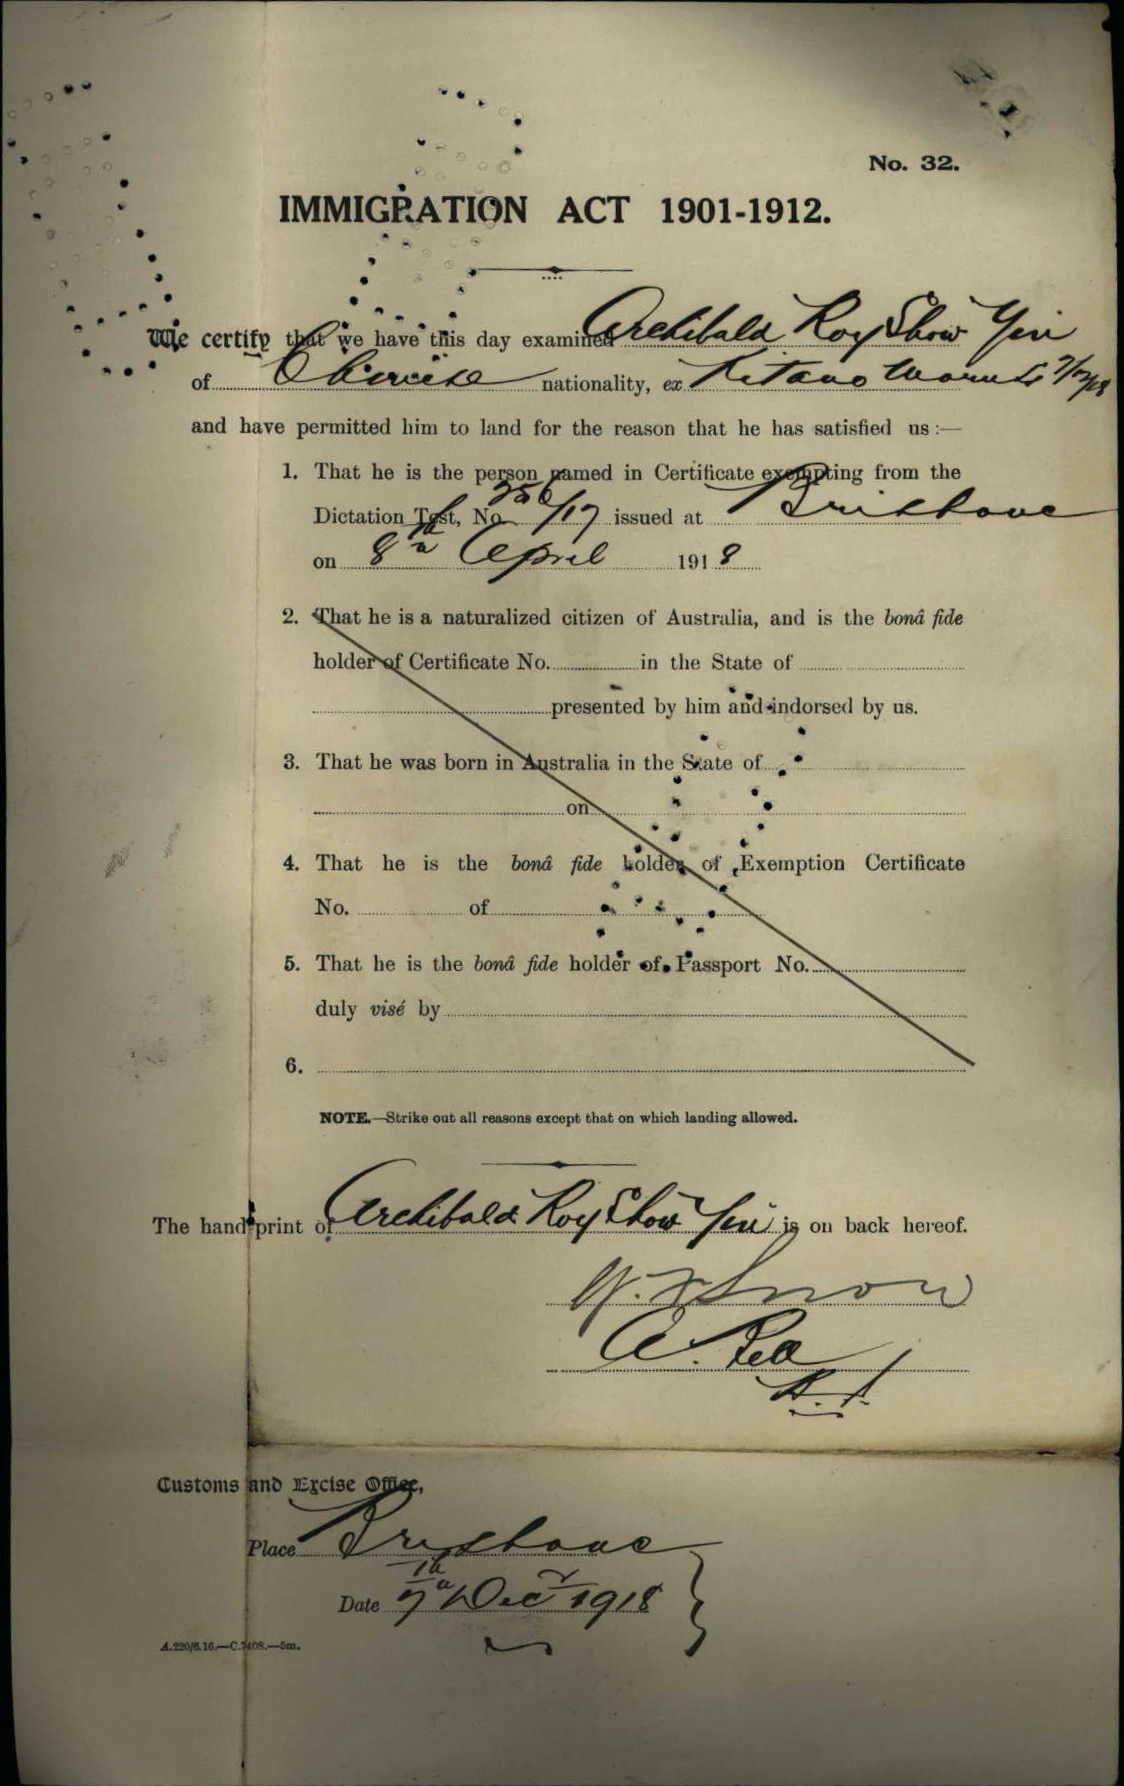 No. 32.
IMMIGRATION ACT 1901-1912.
We certify that we have this day examined Archibald Roy Show Yin
of Chinese nationality, ex Kitano Maru 7/12/18
and have permitted him to land for the reason that he has satisfied us :—
1. That he is the person named in Certificate exempting from the
Dictation Test, No. 256/17 issued at Brisbane
on 8th April 1918
2. That he is a naturalized citizen of Australia, and is the bonâ fide
holder of Certificate No. in the State of
presented by him and indorsed by us.
3. That he was born in Australia in the State of
on
4. That he is the bonâ fide holder of Exemption Certificate
No. of
5. That he is the bonâ fide holder of Passport No.
duly visé by
6.
NOTE.—Strike out all reasons except that on which landing allowed.
The hand-print of Archibald Roy Show Yin is on back hereof.
Customs and Excise Office,
Place Brisbane
Date 7th Decr 1918
A.220/6.16.—C.7408.—5m.